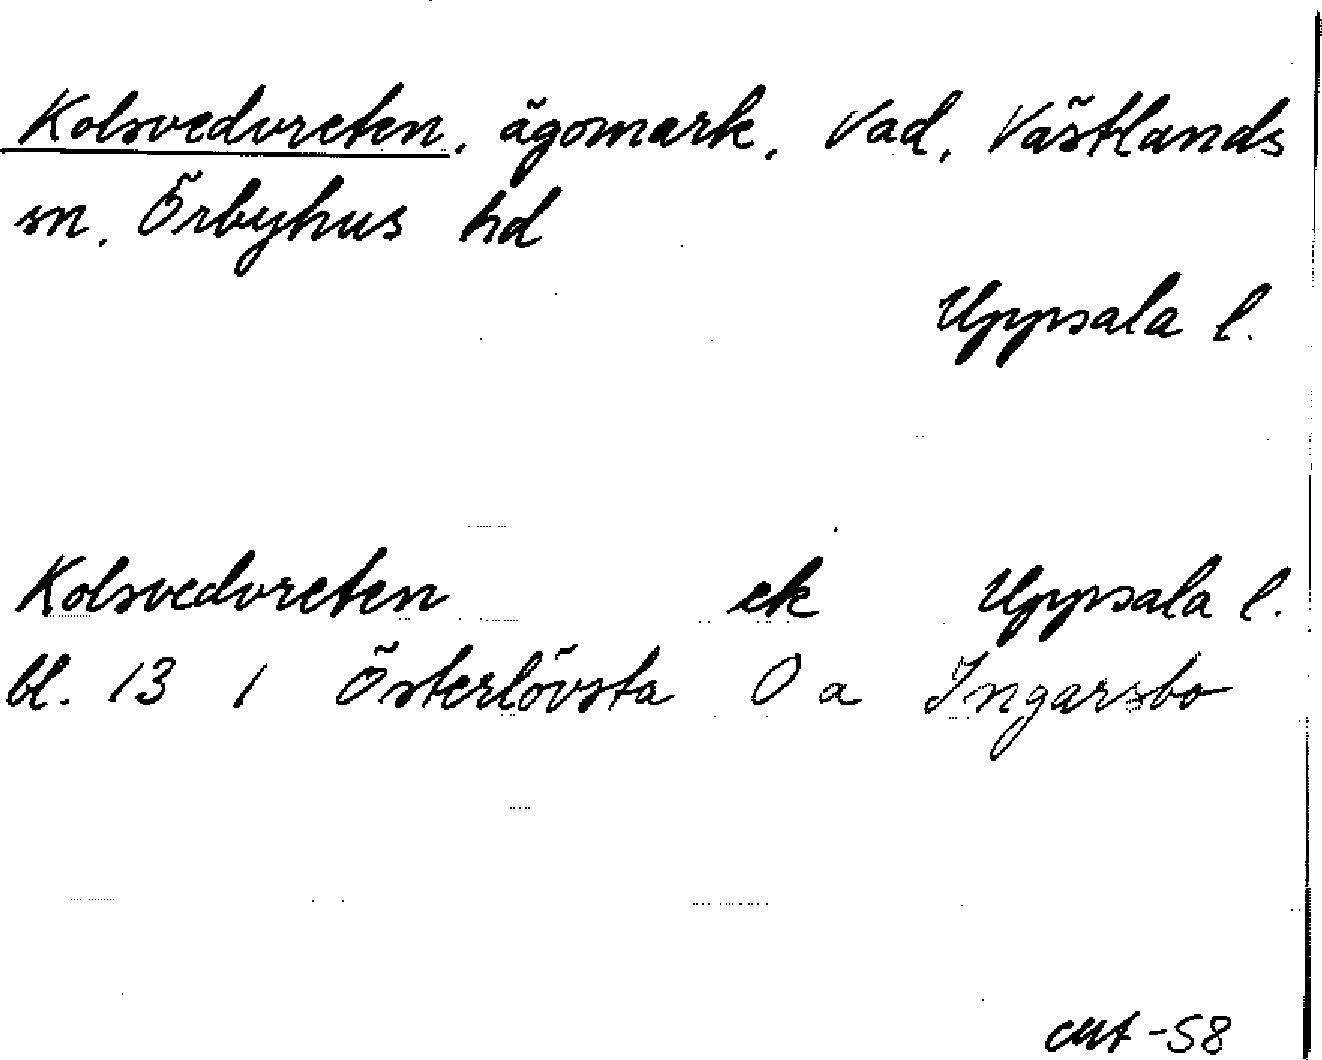 Kolsvedvreten, ägomark, Vad, Västlands
sn, Örbyhus hd
Uppsala l.
Kolsvedvreten ek Uppsala l.
bl. 13 1 Österlövsta O a Ingarsbo
-58